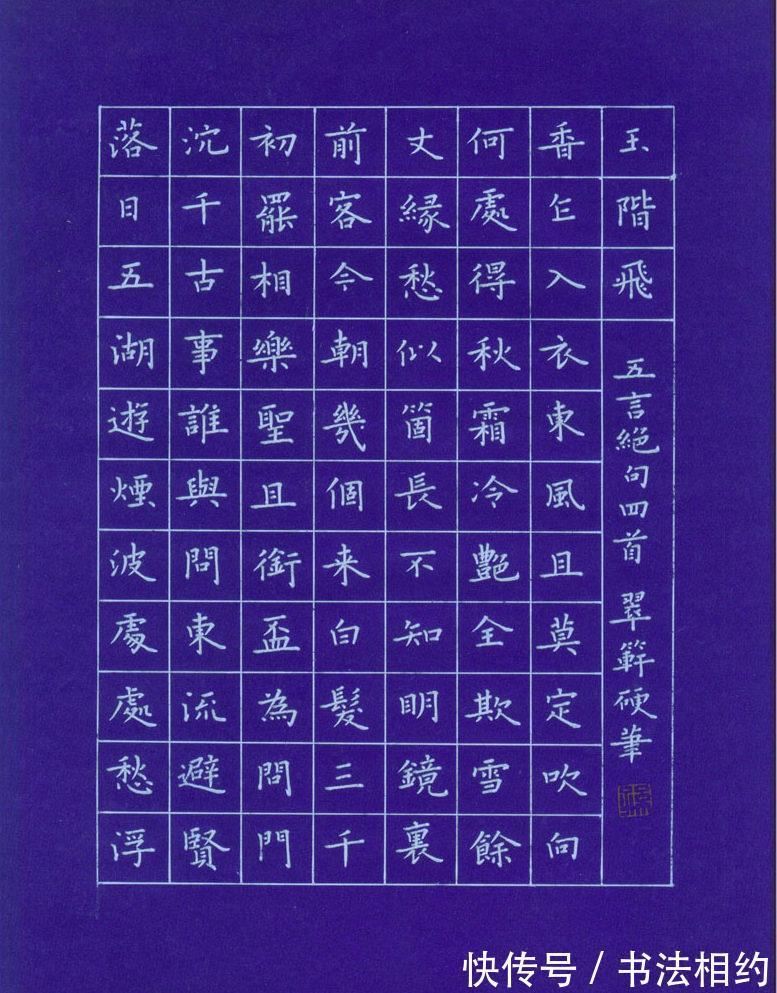 落日五湖遊煙波處處愁浮
沉千古事誰與問東流避賢
初罷相樂聖且銜盃為問門
前客今朝幾個来白髮三千
丈緣愁似箇長不知明鏡裏
何處得秋霜冷艷全欺雪餘
香乍入衣東風且莫定吹向
玉階飛
五言絕句四首 翠簳硬筆
快传号 / 书法相约